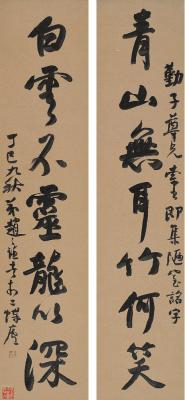 勤子尊兄 即集陋室銘字
青山無耳竹何笑
白雲不靈龍以深
丁巳九秋 弟趙